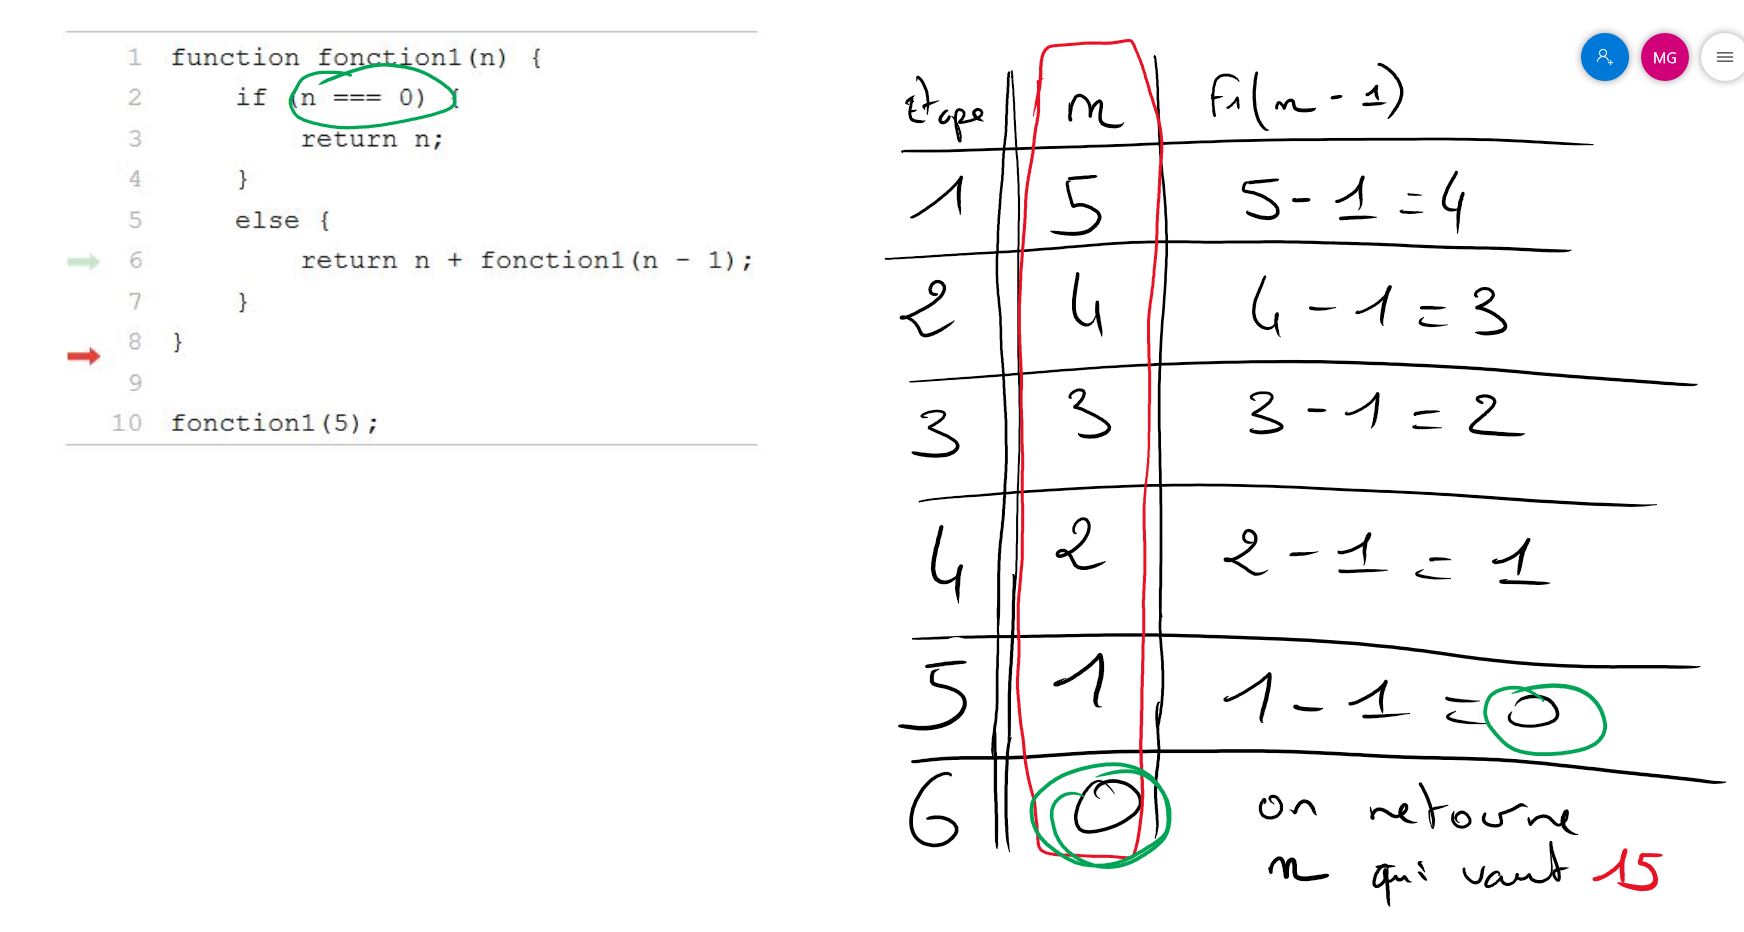 1 function fonction1(n) {
2 if (n === 0) {
3 return n;
4 }
5 else {
6 return n + fonction1(n - 1);
7 }
8 }
9
10 fonction1(5);
MG
Etape n F1(n - 1)
1 5 5 - 1 = 4
2 4 4 - 1 = 3
3 3 3 - 1 = 2
4 2 2 - 1 = 1
5 1 1 - 1 = 0
6 0 on retourne
n qui vaut 15